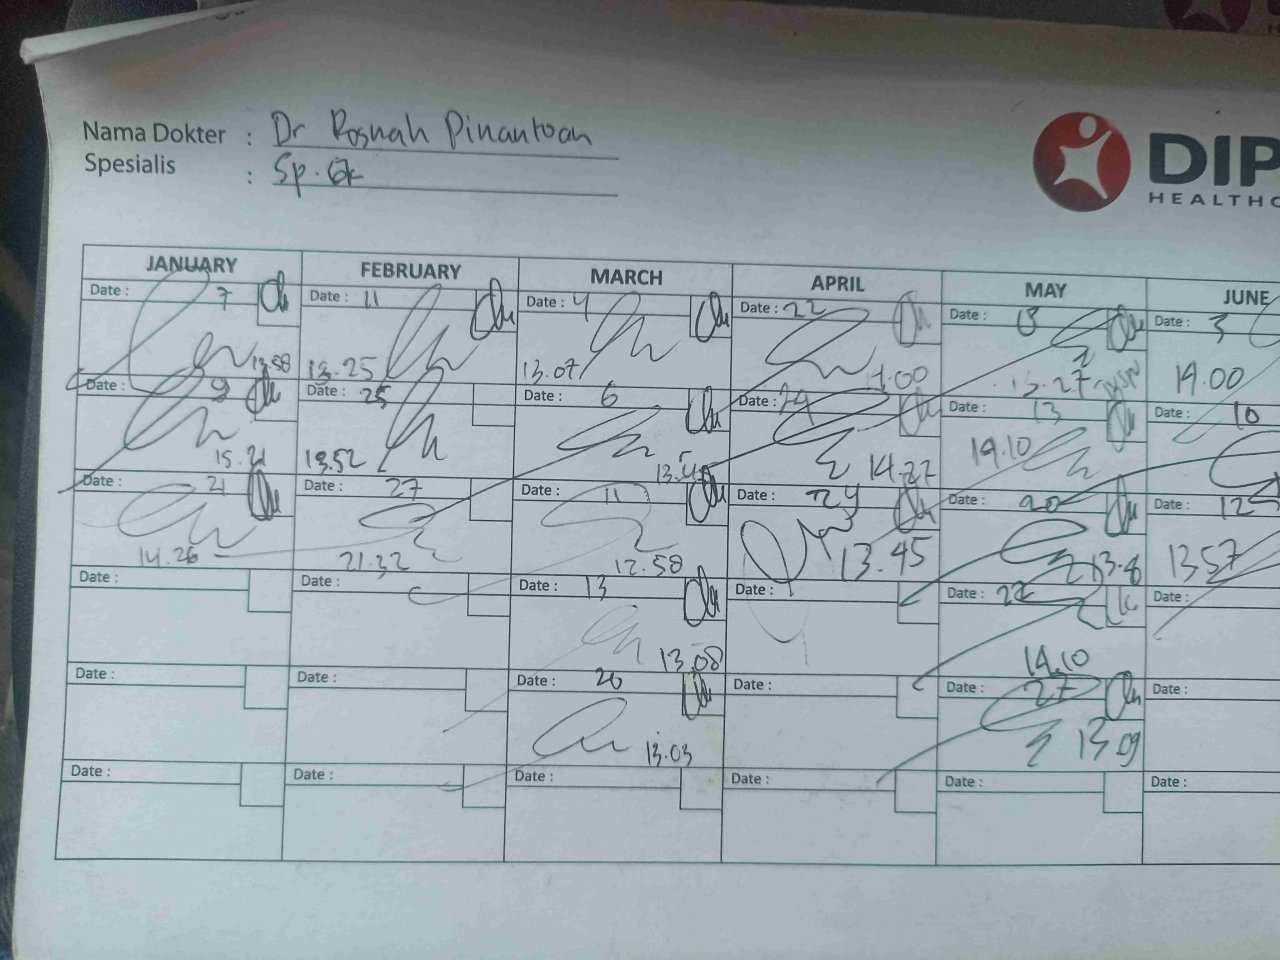 Nama Dokter : Dr Rosnah Pinantoan
Spesialis : Sp. GK
DIP
HEALTHC
JANUARY FEBRUARY MARCH APRIL MAY JUNE
Date : 7 Date : 11 Date : 4 Date : 22 Date : Date : 3
13.58 13.25 13.07 14.00 13.27 14.00
Date : 9 Date : 25 Date : 6 Date : 24 Date : 13 Date : 10
15.21 13.52 14.27 14.10
Date : 21 Date : 27 Date : 11 Date : 29 Date : 20 Date : 12
14.26 21.32 12.58 13.45 13.57
Date : Date : Date : 13 Date : Date : 22 Date :
13.08 14.10
Date : Date : Date : 20 Date : Date : 27 Date :
13.03 13 09
Date : Date : Date : Date : Date : Date :